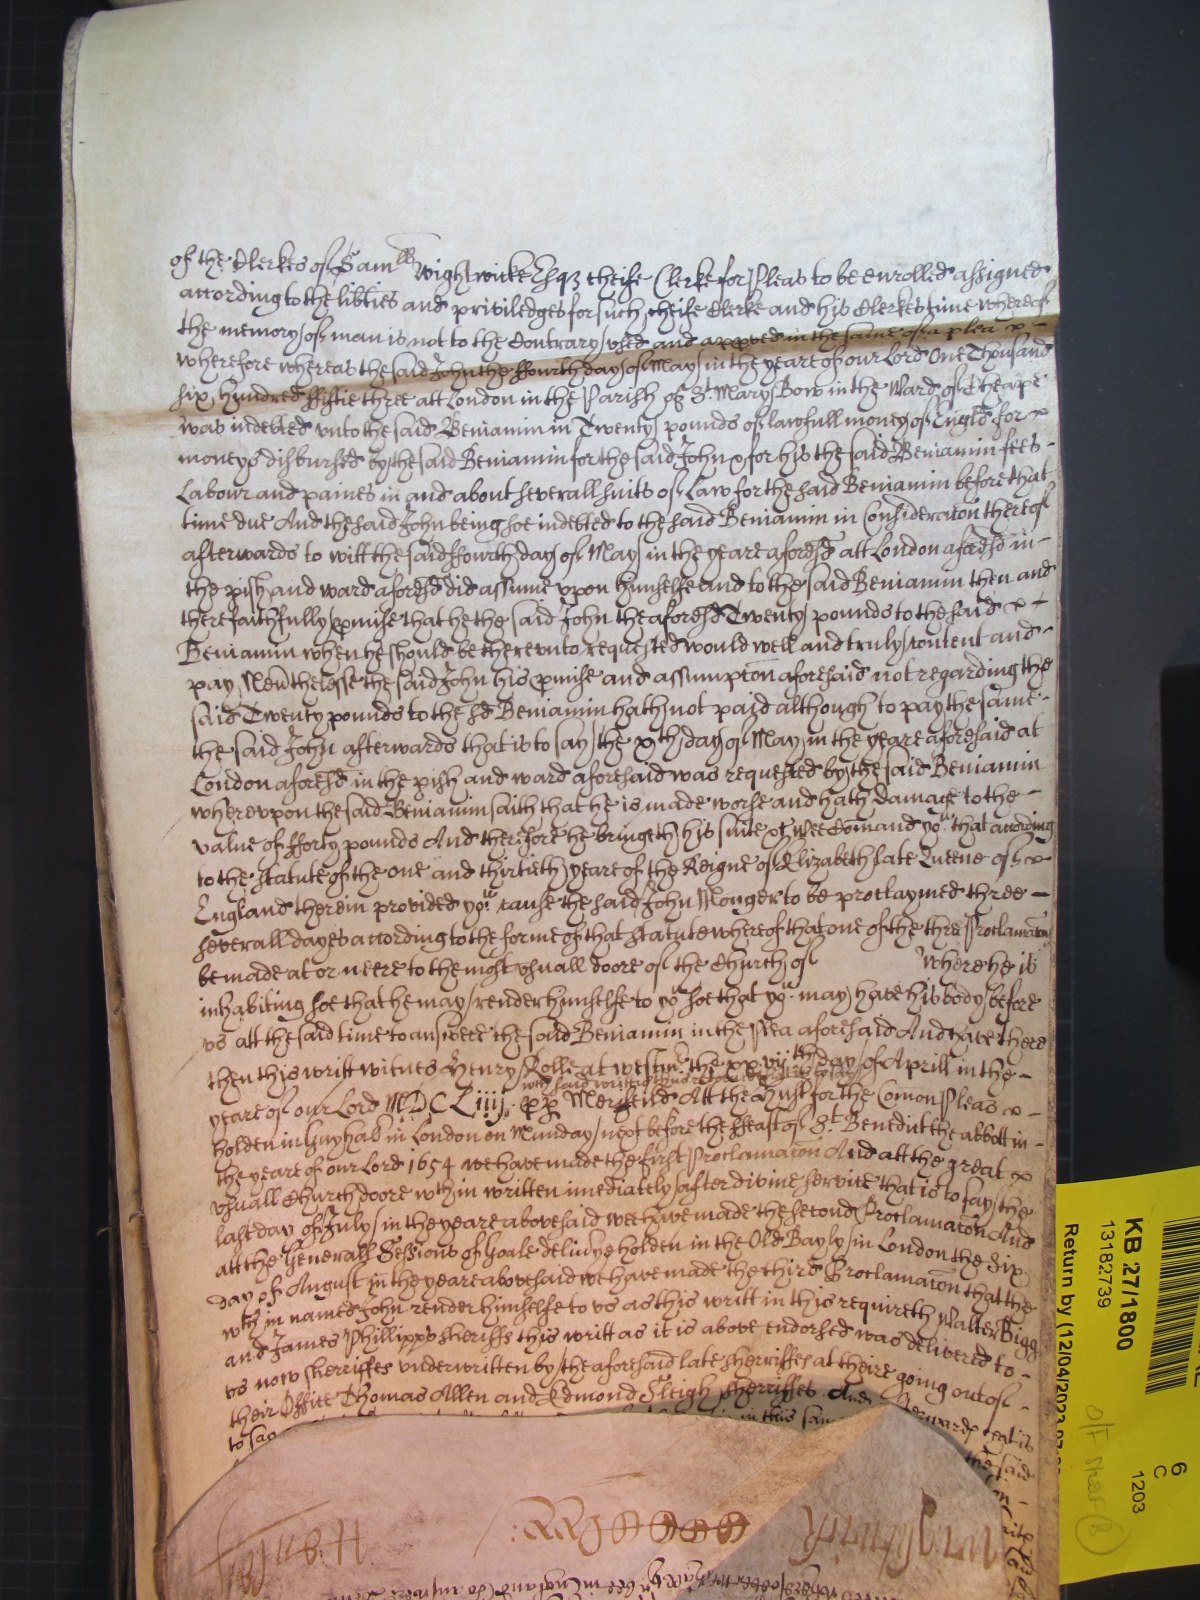 of the Clerkes of Sam^ll Wightwicke Esqz cheife Clerke for Pleas to be enrolled assigned
according to the libties and priviledges for such cheife Clerke and his Clerkes time whereof
the memory of man is not to the Contrary used and appved in the same of a plea x -
Wherefore whereas the said John the ffourth day of May in the yeare of our Lord One Thousand
six hundred fiftie three att London in the Parish of St. Mary Bow in the Ward of Cheape
was indebted unto the said Beniamin in Twenty pounds of lawfull money of Engld for x
moneys disbursed by the said Beniamin for the said John & for his the said Beniamin fees -
Labour and paines in and about severall suits of Law for the said Beniamin before that
time due And the said John being soe indebted to the said Beniamin in Consideracon thereof
afterwards to witt the said ffourth day of May in the yeare aforesd att London aforesd in -
the pish and ward aforesd did assume upon himselfe and to the said Beniamin then and
there faithfully pmise that he the said John the aforesd Twenty pounds to the said x -
Beniamin when he should be thereunto requested would well and truly content and -
pay Nevthelesse the said John his pmise and assumpcon aforesaid not regarding the
said Twenty pounds to the sd Beniamin hath not paid although to pay the same -
the said John afterwards that is to say the xth day of May in the yeare aforesaid at
London aforesd in the pish and ward aforesaid was requested by the said Beniamin
whereupon the said Beniamin saith that he is made worse and hath Damage to the -
value of fforty pounds And therefore he bringeth his suite &c Wee Comand you that according
to the Statute of the one and thirtieth yeare of the Reigne of Elizabeth late Queene of x
England therein provided you cause the said John Monger to be proclaymed three -
severall dayes according to the forme of that Statute whereof that one of the three Proclamacons
be made at or neere to the most usuall doore of the Church of where he is
inhabiting soe that he may render himselfe to you soe that you may have his body before
us att the said time to answere the said Beniamin in the Plea aforesaid And have there
then this writt witnes Henry Rolle at Westmr the xxviijth day of Aprill in the -
wch said writt
yeare of our Lord MDCLiiij. Att the Hust for the Comon Pleas x -
holden in Guyhald in London on Munday next before the ffeast of St Benedict the abbott in -
the yeare of our Lord 1654 we have made the first Proclamacon And att the great x
usuall Church doore wthin written imediately after divine service that is to say the
last day of July in the yeare abovesaid wee have made the second Proclamacon And
att the Generall Sessions of Goale delivye holden in the Old Bayly in London the
day of August in the yeare abovesaid we have made the third Proclamacon that the
wthin named John render himselfe to us as this writt in this requireth Walter Bigg
and James Phillipps Sheriffs this writt as it is above endorsed was delivered to -
us now sherriffes underwritten by the aforesaid late sherriffes at theire going out of -
their Office Thomas Allen and Edmond Sleigh sherriffes. And that is
to say in this same
the said
KB 27/1800
13182739
Return by (12/04/2023
6
C
1203